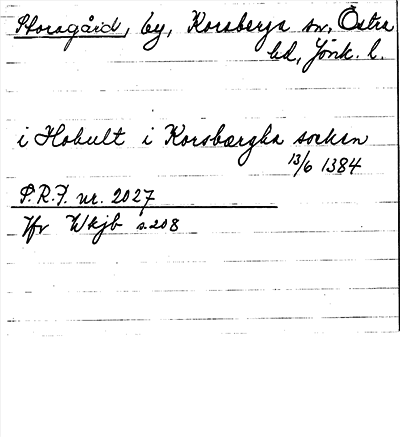 Storagård, by, Korsberga sn, Östra
hd, Jönk. l.
i Hokult i Korsbærgha sokän
13/6 1384
P.R.F. nr. 2027
Jfr Wkjb s. 208